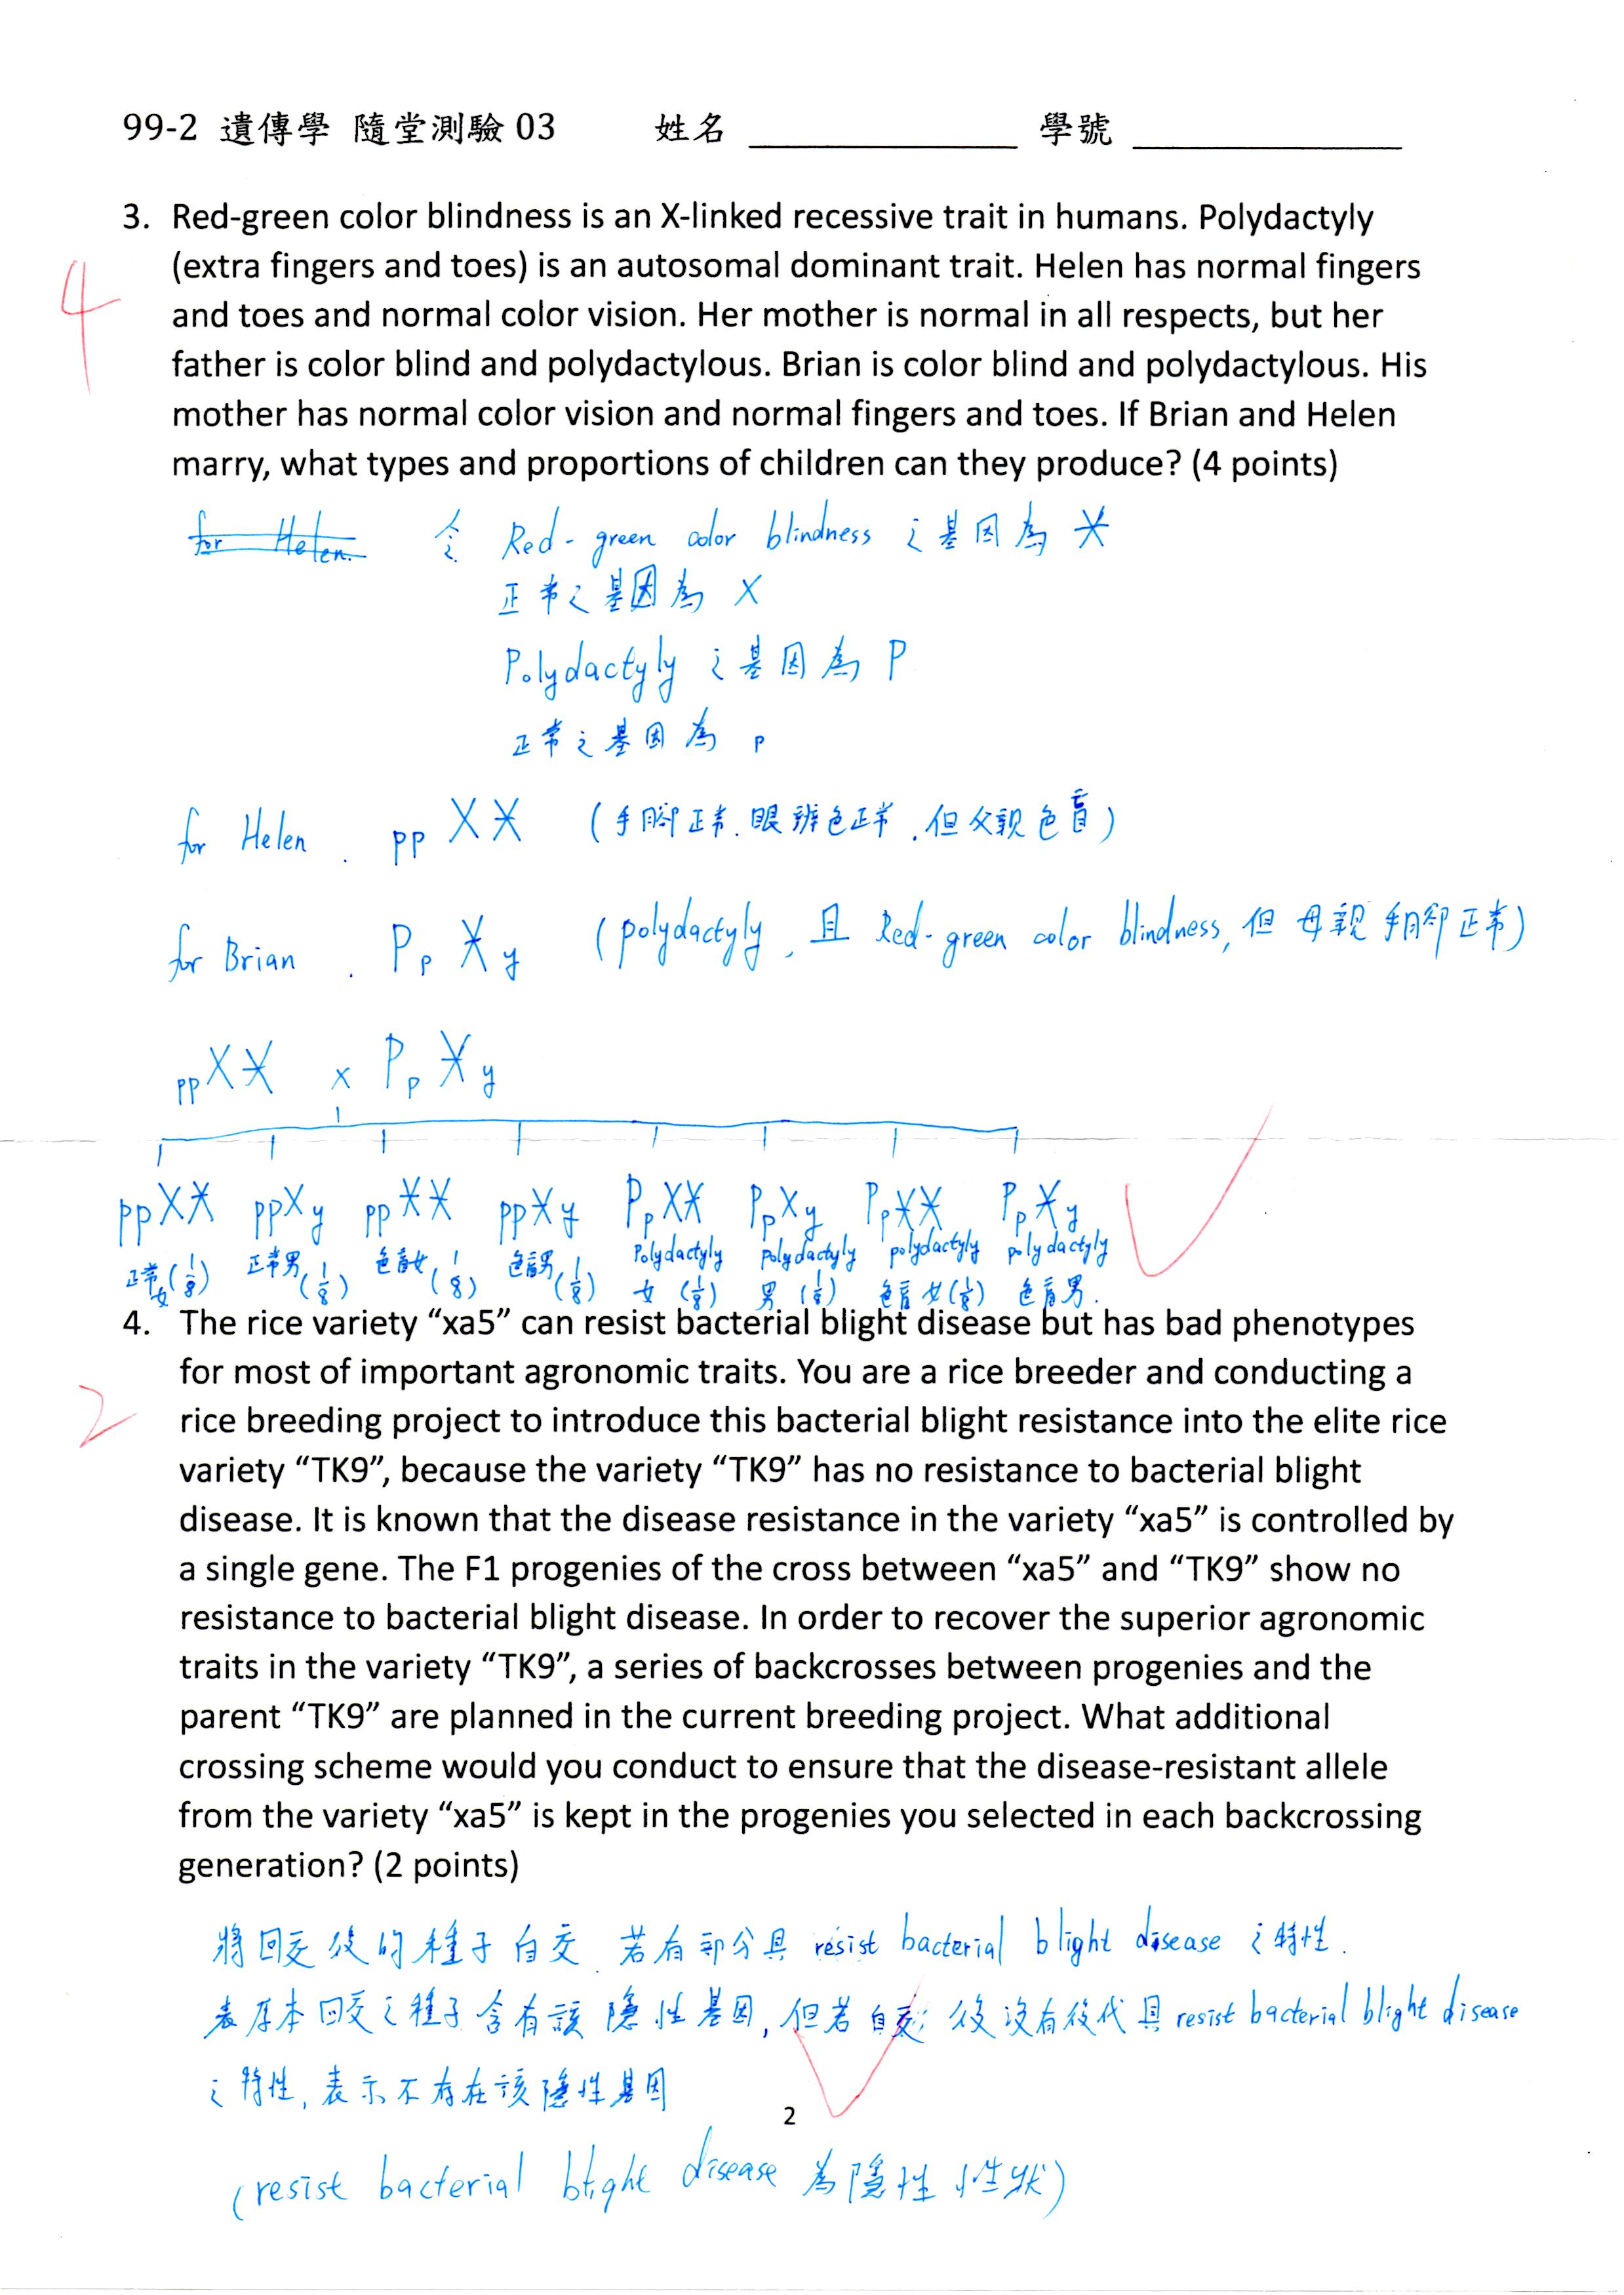 99-2 遺傳學 隨堂測驗 03 姓名 學號
3. Red-green color blindness is an X-linked recessive trait in humans. Polydactyly
(extra fingers and toes) is an autosomal dominant trait. Helen has normal fingers
and toes and normal color vision. Her mother is normal in all respects, but her
father is color blind and polydactylous. Brian is color blind and polydactylous. His
mother has normal color vision and normal fingers and toes. If Brian and Helen
marry, what types and proportions of children can they produce? (4 points)
4
for Helen. 令 Red-green color blindness 之基因為 X
正常之基因為 X
Polydactyly 之基因為 P
正常之基因為 p
for Helen. pp XX (手腳正常.眼辨色正常.但父親色盲)
for Brian. Pp Xy (polydactyly, 且 Red-green color blindness, 但母親手腳正常)
ppXX x Pp Xy
ppXX ppXy ppXX ppXy PpXX PpXy PpXX PpXy
正常女(1/8) 正常男(1/8) 色盲女(1/8) 色盲男(1/8) Polydactyly女(1/8) Polydactyly男(1/8) polydactyly色盲女(1/8) polydactyly色盲男.
4. The rice variety “xa5” can resist bacterial blight disease but has bad phenotypes
for most of important agronomic traits. You are a rice breeder and conducting a
rice breeding project to introduce this bacterial blight resistance into the elite rice
variety “TK9”, because the variety “TK9” has no resistance to bacterial blight
disease. It is known that the disease resistance in the variety “xa5” is controlled by
a single gene. The F1 progenies of the cross between “xa5” and “TK9” show no
resistance to bacterial blight disease. In order to recover the superior agronomic
traits in the variety “TK9”, a series of backcrosses between progenies and the
parent “TK9” are planned in the current breeding project. What additional
crossing scheme would you conduct to ensure that the disease-resistant allele
from the variety “xa5” is kept in the progenies you selected in each backcrossing
generation? (2 points)
2
將回交後的種子自交.若有部分具 resist bacterial blight disease 之特性.
表原本回交之種子含有該隱性基因,但若自交後沒有後代具 resist bacterial blight disease
之特性,表示不存在該隱性基因
2
(resist bacterial blight disease 為隱性性狀)